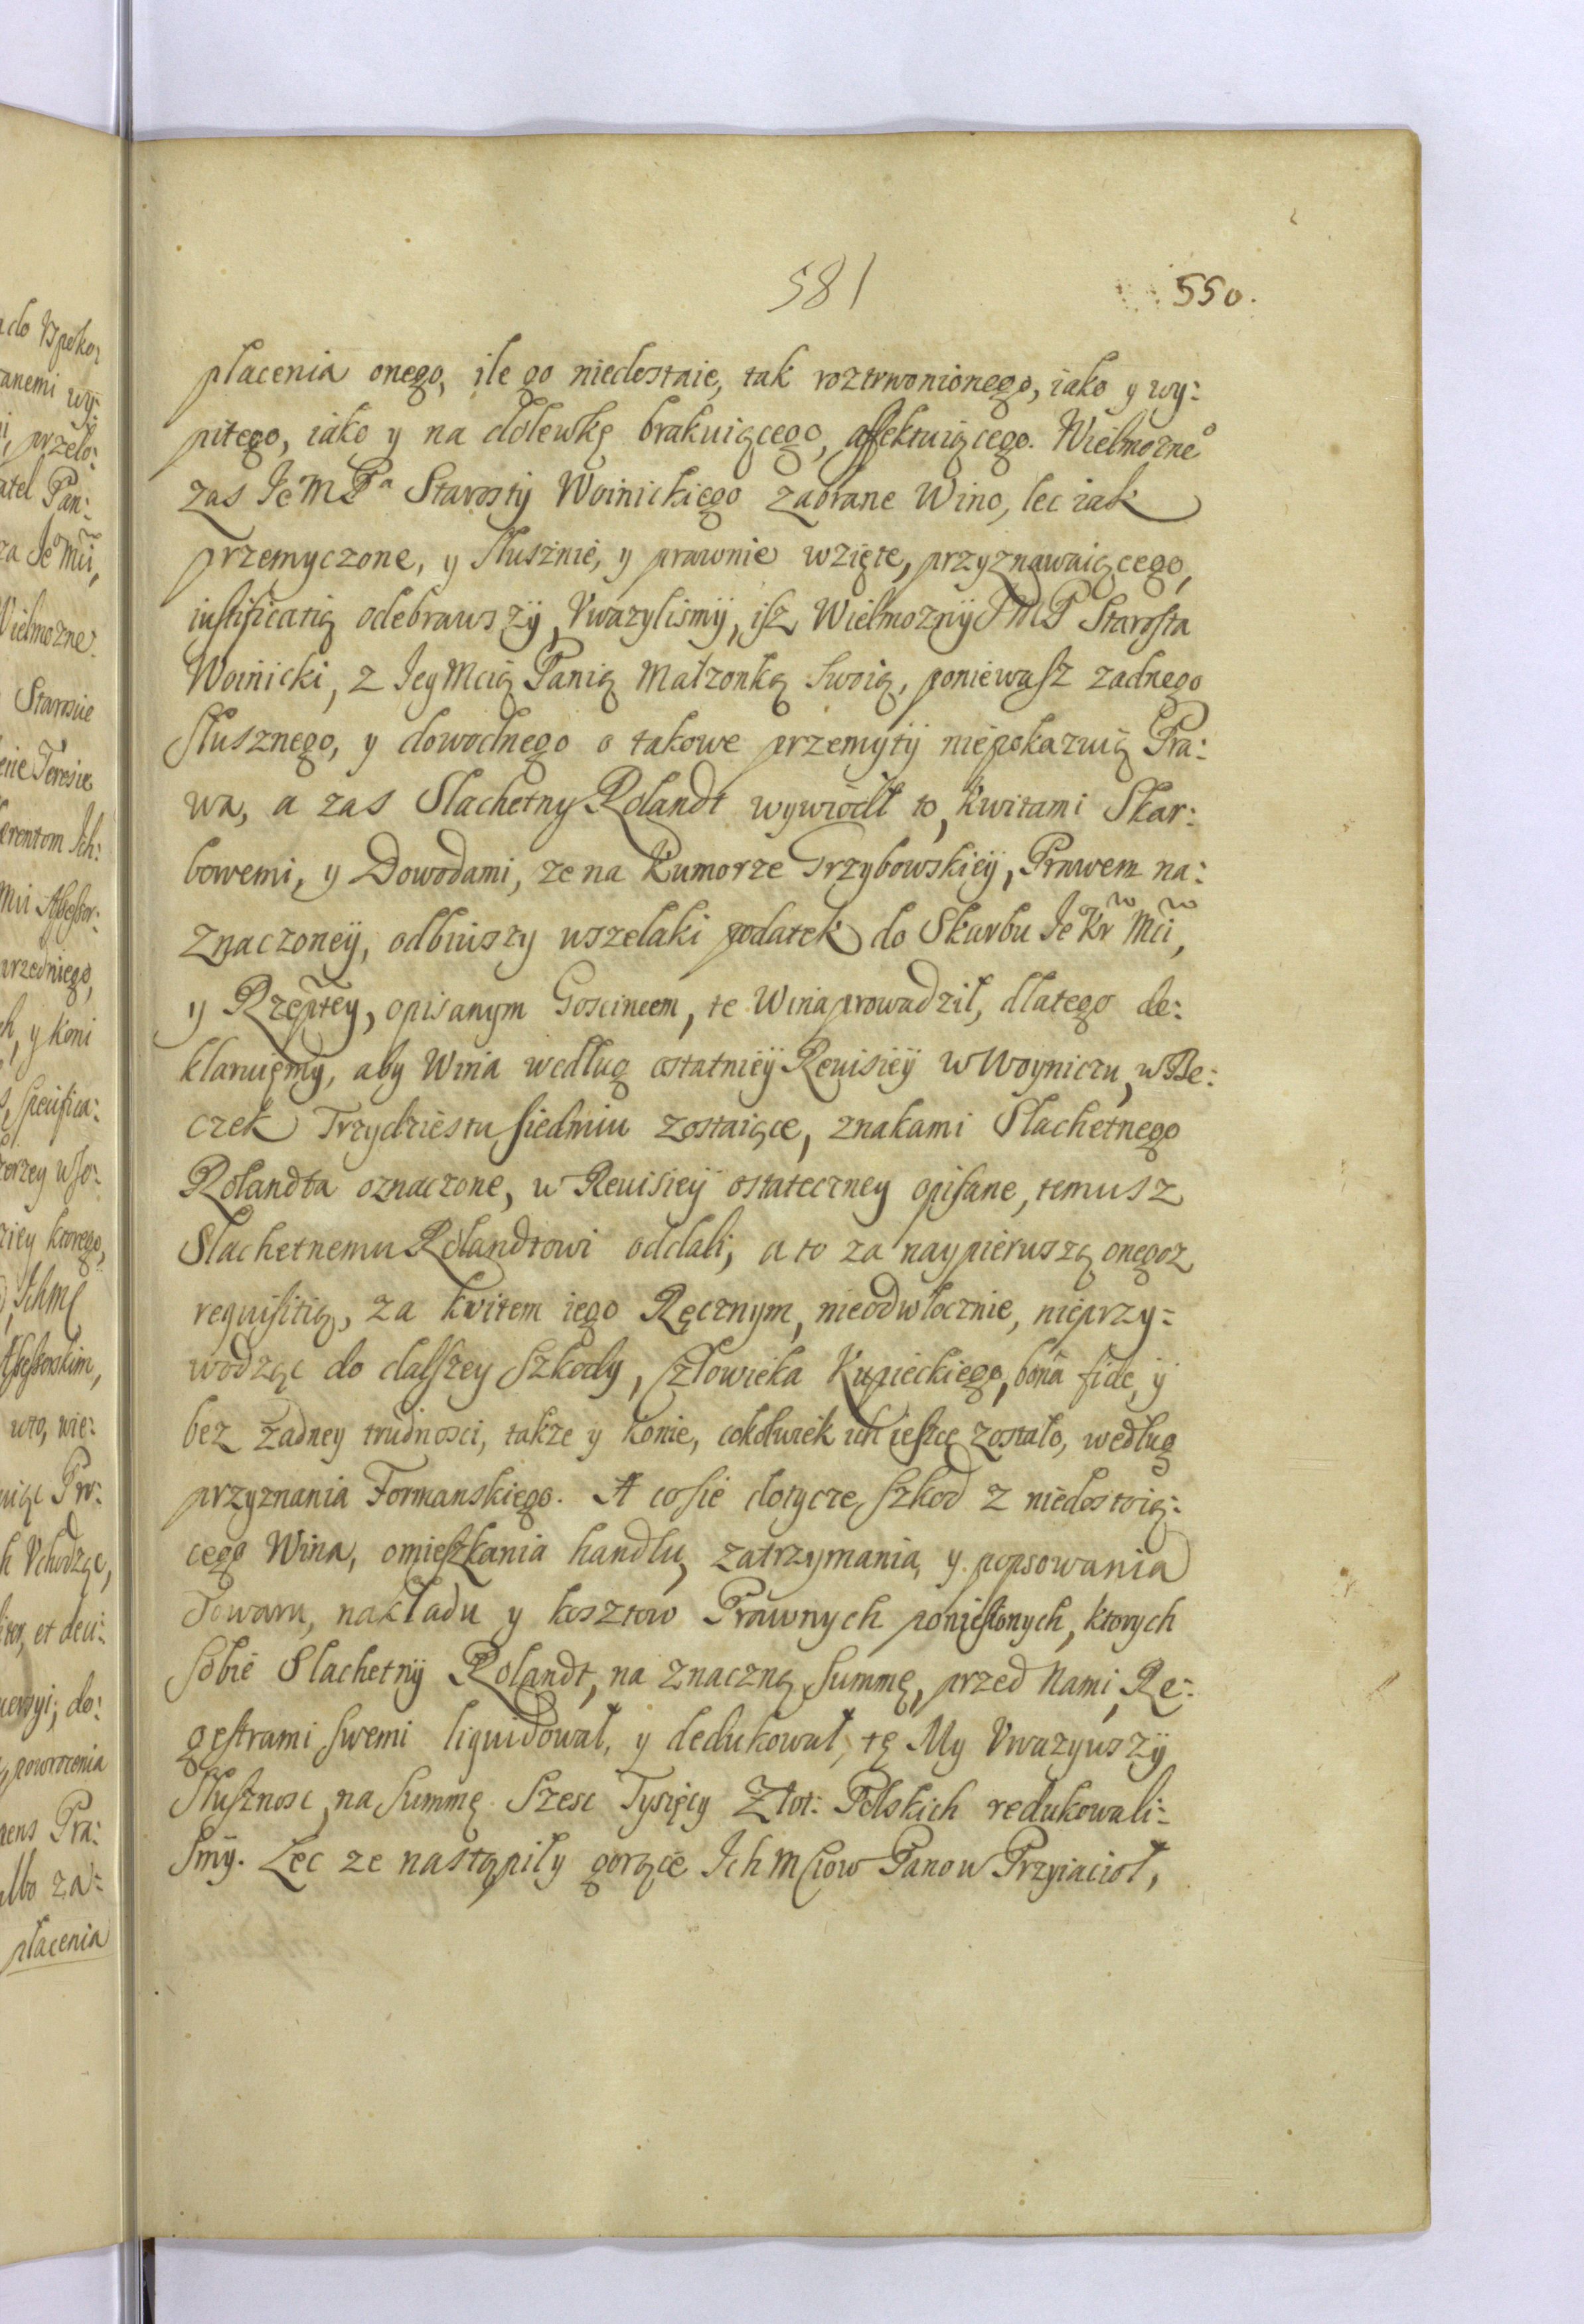 581
550.
płacenia onego, ile go niedostaie, tak roztrwonionego, iako y wy:
pitego, iako y na dolewkę brakuiącego, affektuiącego. Wielmozne°
zas Je° M Pa Starosty Woinickiego zabrane Wino, lec iak
przemyczone, y słusznie, y prawnie wzięte, przyznawaiącego,
iustificatią odebrawszÿ, Vwazylismÿ, isz WielmoznÿJMP Starosta
Woinicki, z JeyMcią Panią Małzonką swoią, poniewasz zadnego
słusznego, y dowodnego o takowe przemytÿ niepokazuią Pra:
wa, a zas Slachetny Rolandt wywiodł to, kwitami Skar:
bowemi, y Dowodami, ze na Kumorze Grzybowskieÿ, Prawem na:
znaczoneÿ, odbiuszy wszelaki podatek do Skarbu Je° Kr Mci,
y Rzeptey, opisanym Goscincem, te Wina prowadził, dlatego de:
klaruięmy, aby Wina według ostatnieÿ Reuisieÿ w Woyniczu, w Be:
czek Trzydziestu siedmiu zostaiące, znakami Slachetnego
Rolandta oznaczone, w Reuisieÿ ostateczney opisane, temusz
Slachetnemu Rolandtowi oddali, a to za naypieruszą onegoz
requisitią, za kwitem iego Ręcznym, nieodwłocznie, nieprzy:
wodząc do dalszey Szkody, człowieka Kupieckiego, bona fide, ÿ
bez zadney trudnosci, takze y konie, cokolwiek ich ieszcze zostało, według
przyznania Formanskiego. A cosie dotycze, szkod z niedostoią:
cego Wina, omieszkania handlu, zatrzymania, y popsowania
Towaru, nakładu y kosztow Prawnych poniesłonych, ktorych
sobie Slachetnÿ Rolandt, na znaczną summę, przed Nami, Re:
gestrami swemi liquidował, y dedukował, tę My Vwazyuszÿ
słusznosc, na summę Szesc Tysięcy Złot: Polskich redukowali:
smÿ. Lec ze nastąpiły gorące Ich Mciow Panow Przyiacioł,